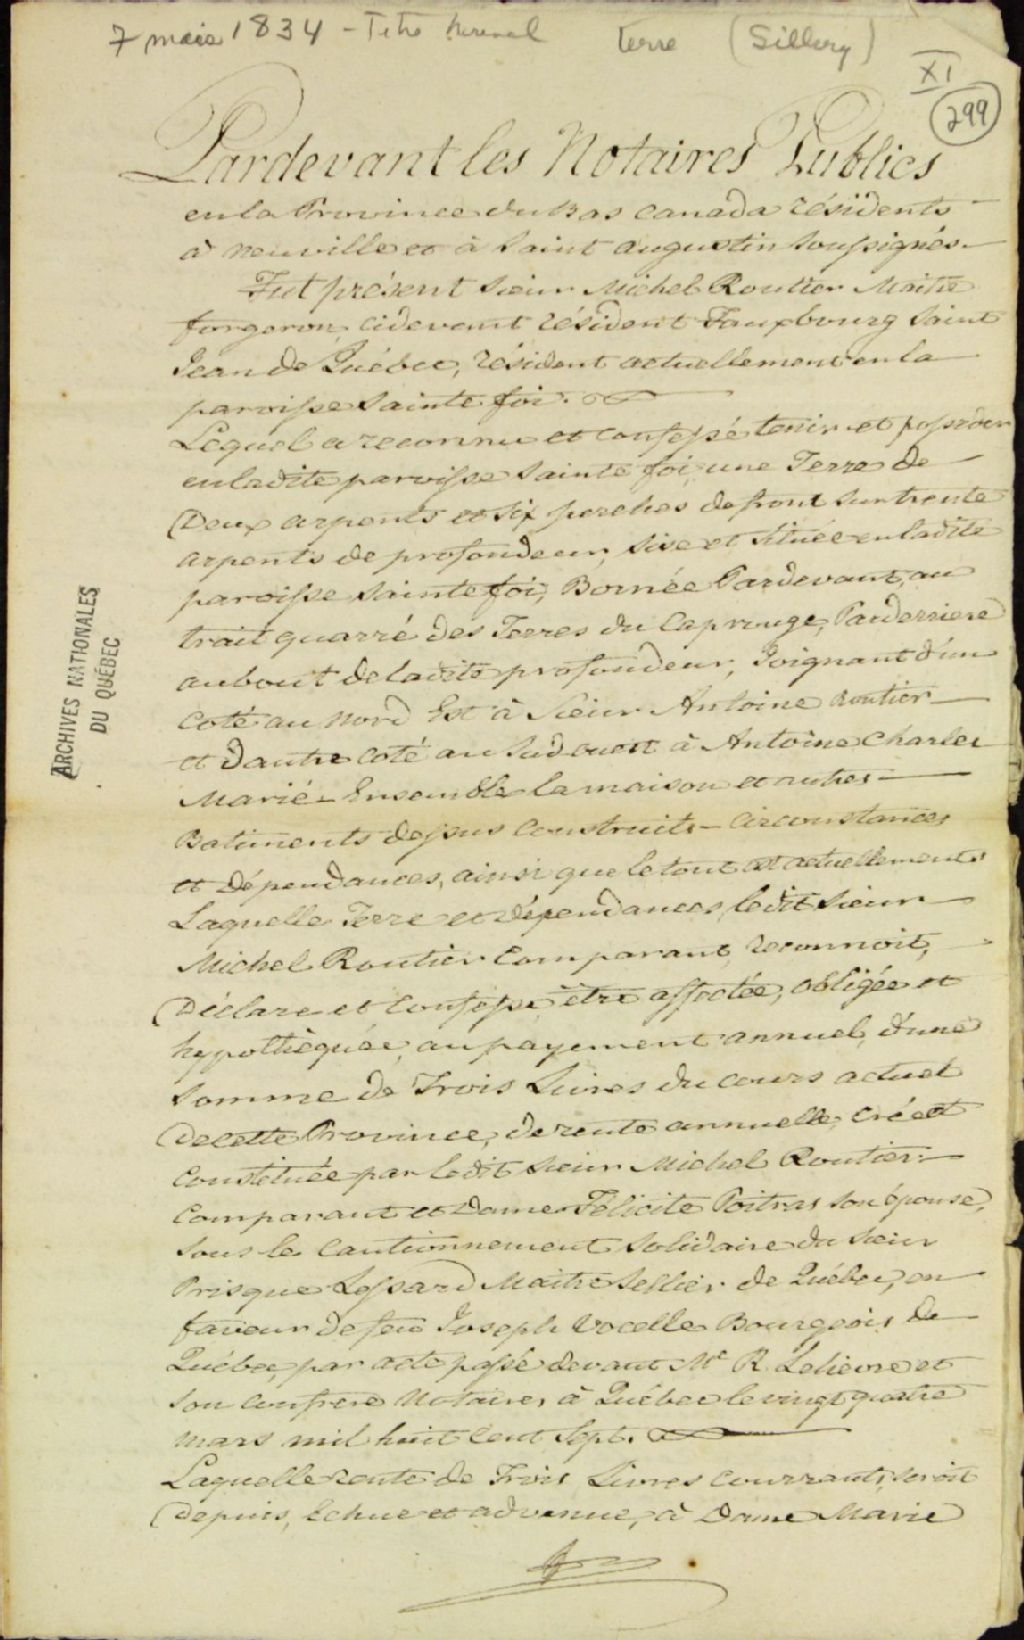 7 mars 1834 - Titre nouvel Terre (Sillery)
XI
299
Pardevant les Notaires Publics
en la Province du Bas Canada résidents
à Neuville et à Saint Augustin soussignés.
Fut présent Sieur Michel Routier Maitre
forgeron, cidevant résident Fauxbourg Saint
Jean de Québec, résident actuellement en la
paroisse Sainte foi.
Lequel a reconnu et confessé tenir et posséder
en ladite paroisse Sainte foi, une Terre de
Deux arpents et six perches de front sur trente
arpents de profondeur, sise et située en ladite
paroisse Sainte foi, Bornée Pardevant, au
trait quarré des Terres du Cap rouge, Parderriere
au bout de ladite profondeur, Joignant d'un
coté au Nord Est à Sieur Antoine Routier
et d'autre coté au Sud ouest à Antoine Charles
Marié - Ensemble la maison et autres
Batiments dessus construits - circonstances
et dépendances, ainsi que le tout est actuellement
Laquelle Terre et dépendances, ledit Sieur
Michel Routier Comparant, reconnoit,
Déclare et confesse être affectée, obligée et
hypothèquée, au payement annuel, d'une
somme de Trois Livres du cours actuel
de cette Province, de rente annuelle, créée et
constituée par ledit Sieur Michel Routier
Comparant et Dame Félicité Poitras son épouse,
sous le cautionnement solidaire du Sieur
Prisque Lessard Maitre Sellier de Québec, en
faveur de feu Joseph Vocelle Bourgeois de
Québec, par acte passé devant Me R. Lelievre et
son confrere Notaires à Québec le vingt quatre
mars mil huit cent Sept.
Laquelle rente de Trois Livres courrant, seroit
depuis, Echue et advenue, à Dame Marie
ARCHIVES NATIONALES
DU QUÉBEC